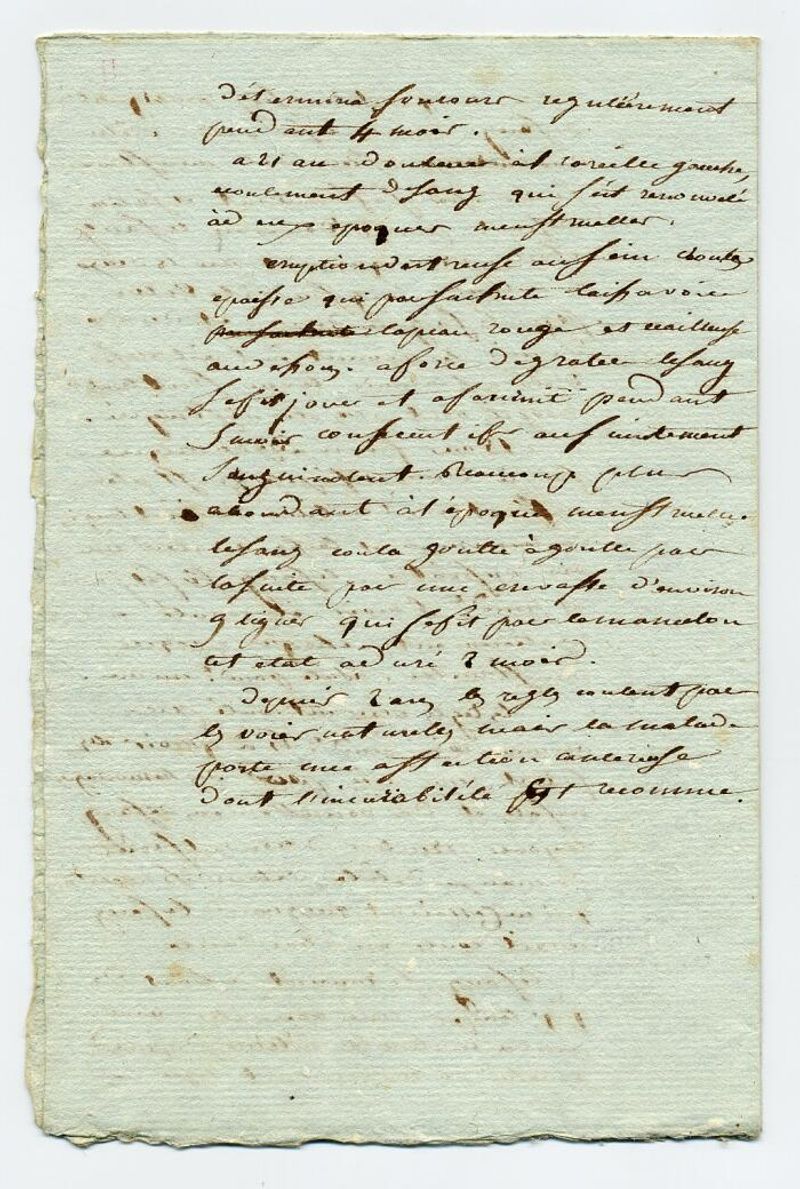 détermina son cours regulièrement
pendant 4 mois.
a 21 an douleur à l'oreille gauche,
ecoulement de sang qui s'est renouvelé
à deux epoques menstruelles.
eruption dartreuse au sein croutes
epaisse qui par sa chute laissa voir
par sa chute la peau rouge et ecailleuse
au dessous. a force de grater le sang
se fit jour et a fourni pendant
5 mois consecutifs un suintement
sanguinolent. beaucoup plus
abondant à l'époque menstruelle.
le sang coula goutte à goutte par
la suite par une crevasse d'environ
9 lignes qui se fit par le mamelon
cet etat a duré 2 mois.
depuis 2 ans les regles coulent par
les voies naturelles mais la malade
porte une affection cancereuse
dont l'incurabilité est reconnue.